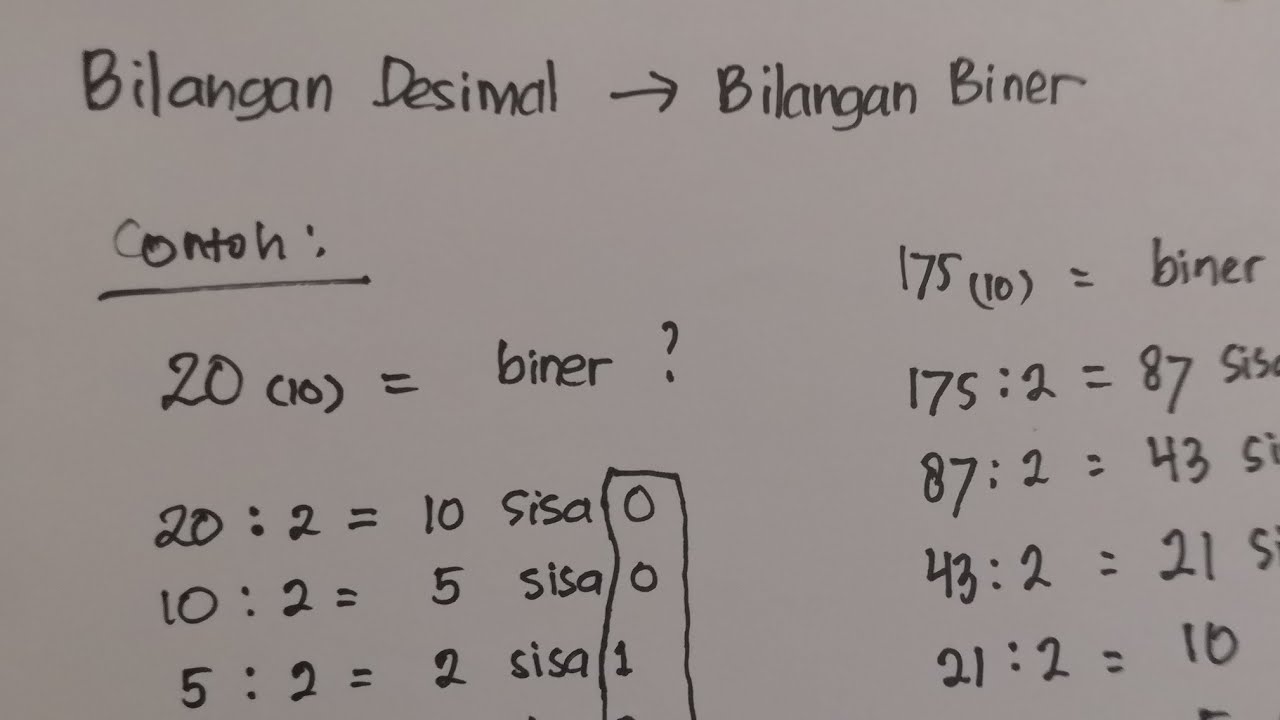 Bilangan Desimal → Bilangan Biner
Contoh :
20 (10) = biner ?
20 : 2 = 10 sisa 0
10 : 2 = 5 sisa 0
5 : 2 = 2 sisa 1
175 (10) = biner
175 : 2 = 87 sisa
87 : 2 = 43 si
43 : 2 = 21 si
21 : 2 = 10